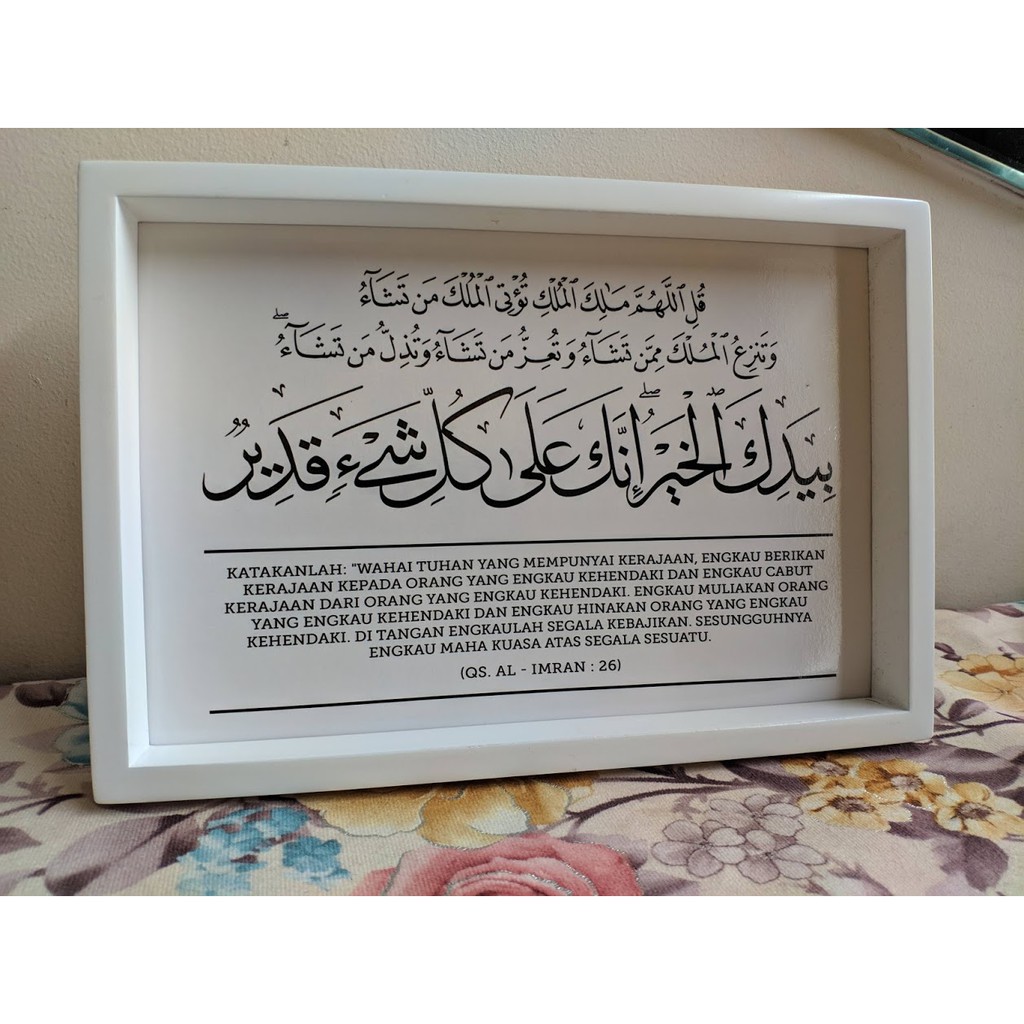 قُلِ ٱللَّهُمَّ مَٰلِكَ ٱلْمُلْكِ تُؤْتِى ٱلْمُلْكَ مَن تَشَآءُ
وَتَنزِعُ ٱلْمُلْكَ مِمَّن تَشَآءُ وَتُعِزُّ مَن تَشَآءُ وَتُذِلُّ مَن تَشَآءُ ۖ
بِيَدِكَ ٱلْخَيْرُ ۖ إِنَّكَ عَلَىٰ كُلِّ شَىْءٍ قَدِيرٌ
KATAKANLAH: "WAHAI TUHAN YANG MEMPUNYAI KERAJAAN, ENGKAU BERIKAN
KERAJAAN KEPADA ORANG YANG ENGKAU KEHENDAKI DAN ENGKAU CABUT
KERAJAAN DARI ORANG YANG ENGKAU KEHENDAKI. ENGKAU MULIAKAN ORANG
YANG ENGKAU KEHENDAKI DAN ENGKAU HINAKAN ORANG YANG ENGKAU
KEHENDAKI. DI TANGAN ENGKAULAH SEGALA KEBAJIKAN. SESUNGGUHNYA
ENGKAU MAHA KUASA ATAS SEGALA SESUATU.
(QS. AL - IMRAN : 26)